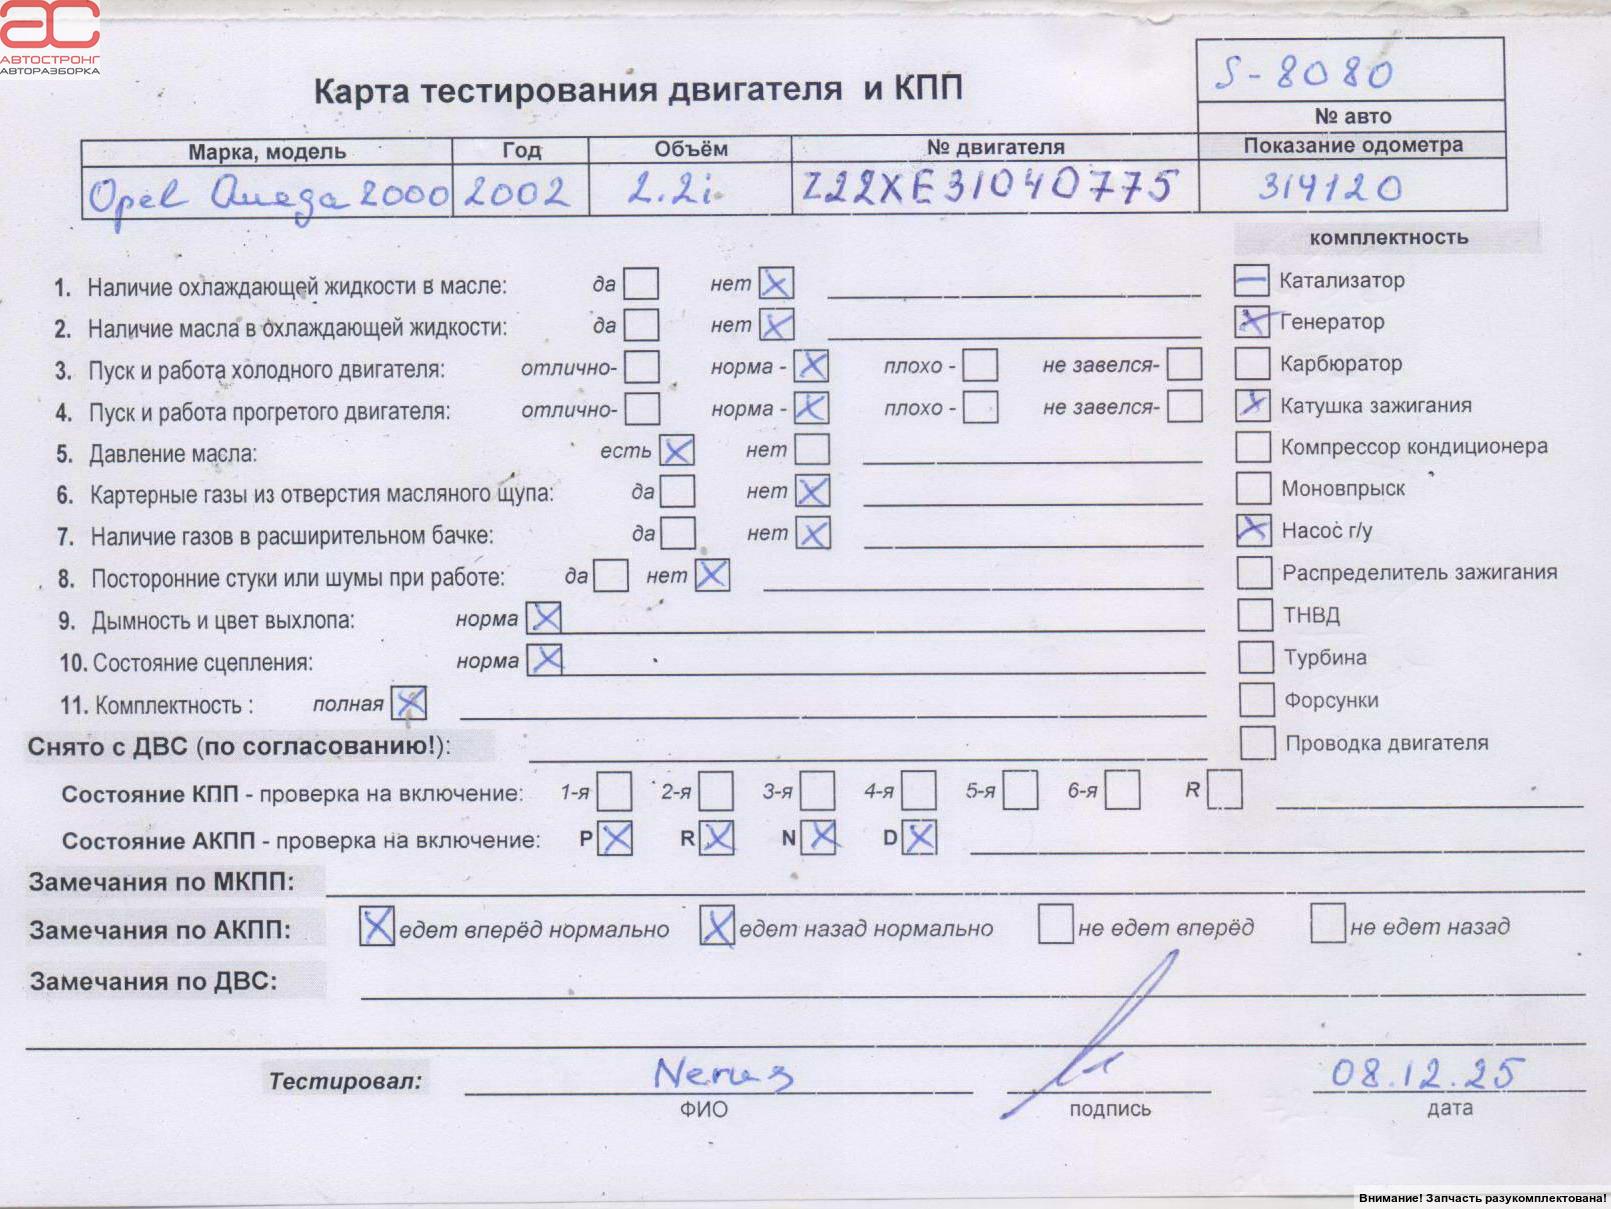 АВТОСТРОНГ
АВТОРАЗБОРКА
S-8080
Карта тестирования двигателя и КПП
№ авто
Марка, модель Год Объём № двигателя Показание одометра
Opel Omega 2000 2002 2.2i Z22XE31040775 314120
комплектность
1. Наличие охлаждающей жидкости в масле: да нет Катализатор
2. Наличие масла в охлаждающей жидкости: да нет Генератор
3. Пуск и работа холодного двигателя: отлично- норма - плохо - не завелся- Карбюратор
4. Пуск и работа прогретого двигателя: отлично- норма - плохо - не завелся- Катушка зажигания
5. Давление масла: есть нет Компрессор кондиционера
6. Картерные газы из отверстия масляного щупа: да нет Моновпрыск
7. Наличие газов в расширительном бачке: да нет Насос г/у
8. Посторонние стуки или шумы при работе: да нет Распределитель зажигания
9. Дымность и цвет выхлопа: норма ТНВД
10. Состояние сцепления: норма Турбина
11. Комплектность : полная Форсунки
Снято с ДВС (по согласованию!): Проводка двигателя
Состояние КПП - проверка на включение: 1-я 2-я 3-я 4-я 5-я 6-я R
Состояние АКПП - проверка на включение: P R N D
Замечания по МКПП:
Замечания по АКПП: едет вперёд нормально едет назад нормально не едет вперёд не едет назад
Замечания по ДВС:
Тестировал: 08.12.25
ФИО подпись дата
Внимание! Запчасть разукомплектована!